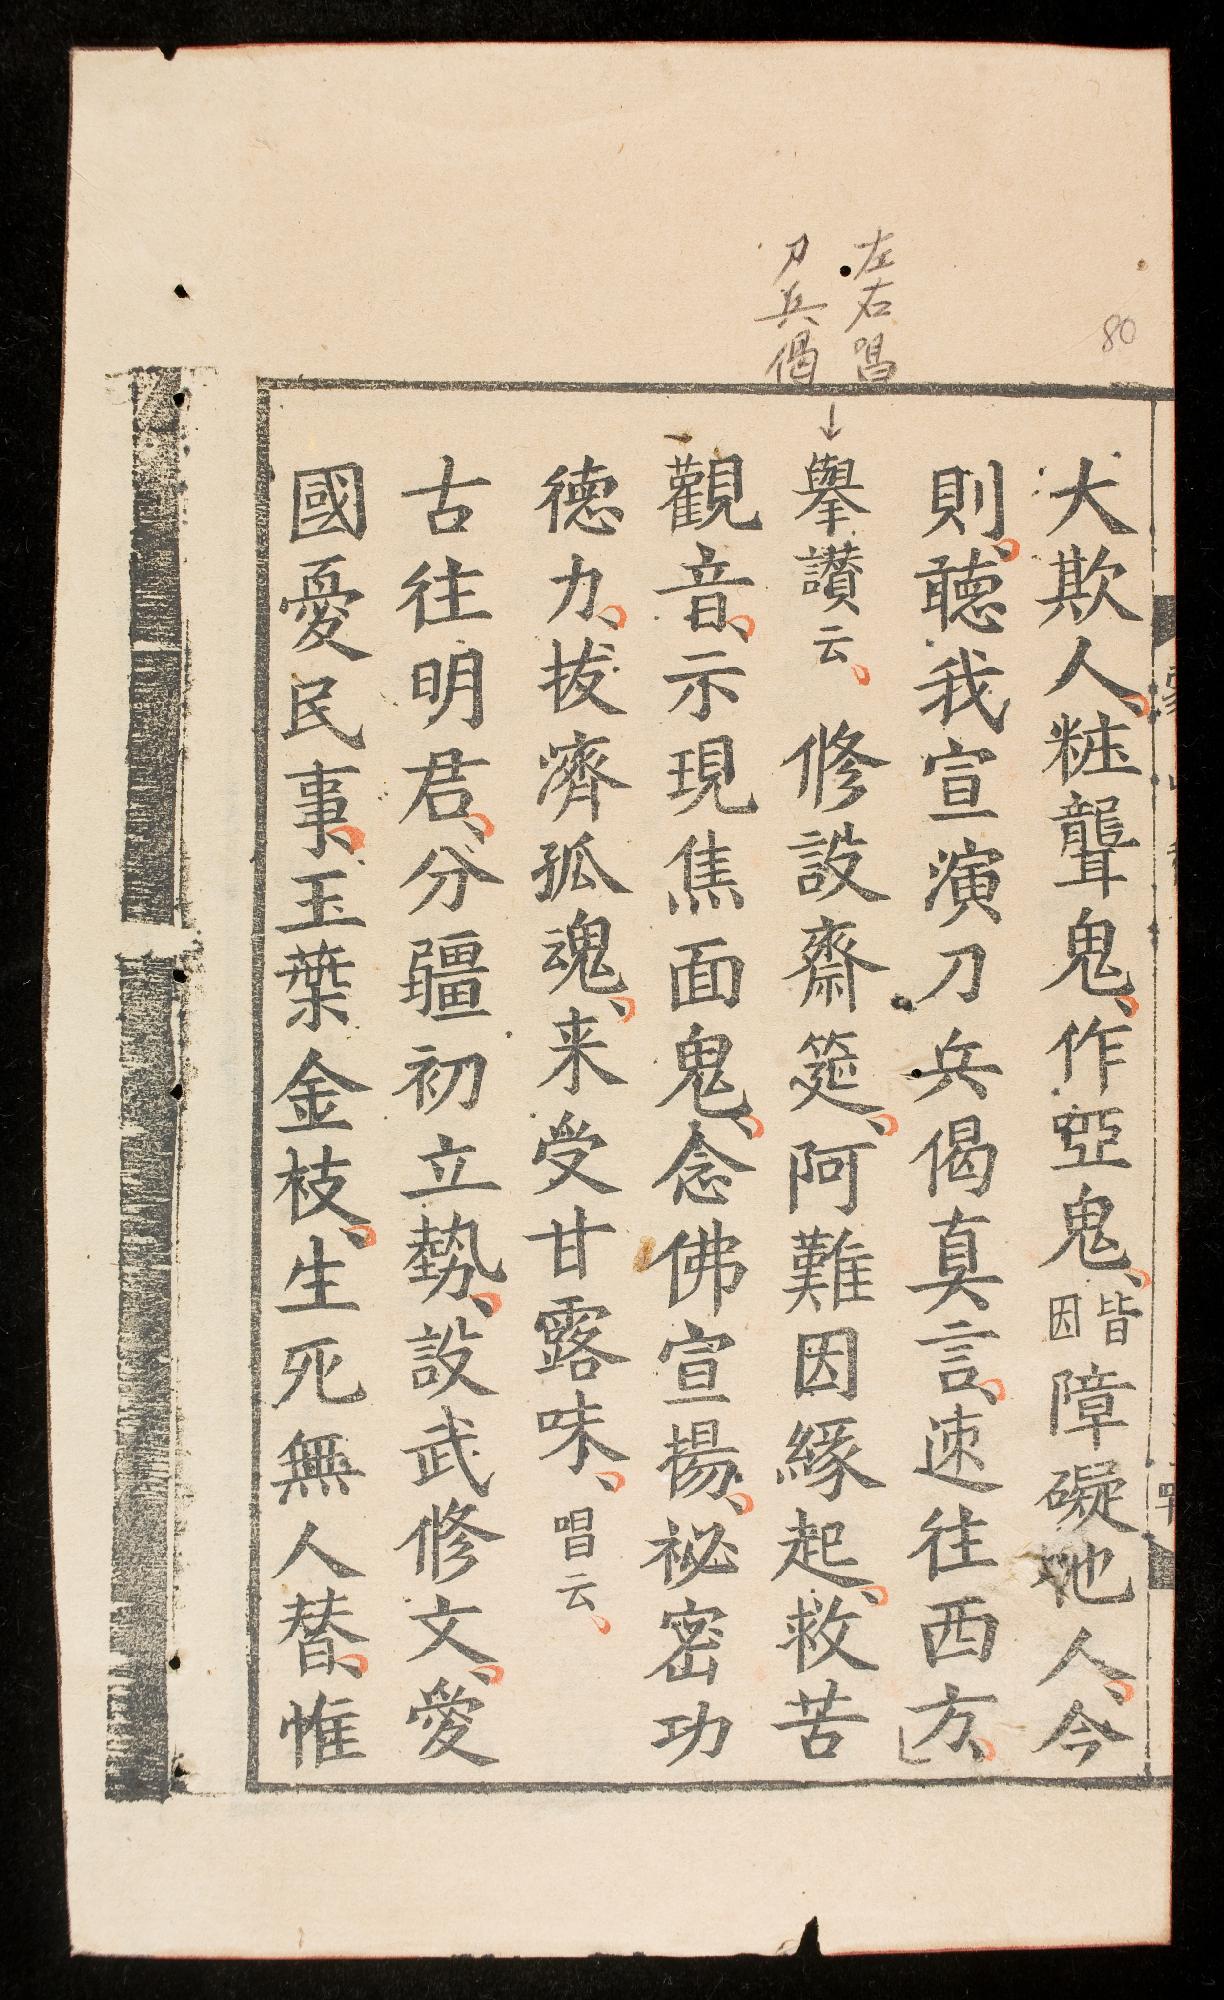 80
左右唱
刀兵偈
↓
大欺人、粧聾鬼、作啞鬼、皆因障礙他人、今
則、聽我宣演刀兵偈真言、速往西方、
舉讚云、修設齋筵、阿難因緣起、救苦
觀音、示現焦面鬼、念佛宣揚、祕密功
德力、拔濟孤魂、来受甘露味、唱云、
古往明君、分疆初立勢、設武修文、愛
國憂民事、玉葉金枝、生死無人替、惟